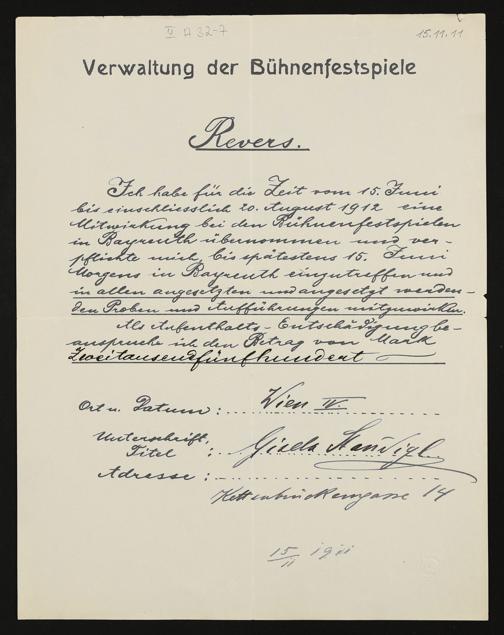 II A 32-7
15.11.11
Verwaltung der Bühnenfestspiele
Revers.
Ich habe für die Zeit vom 15. Juni
bis einschliesslich 20. August 1912 eine
Mitwirkung bei den Bühnenfestspielen
in Bayreuth übernommen und ver-
pflichte mich, bis spätestens 15. Juni
Morgens in Bayreuth einzutreffen und
in allen angesetzten und angesetzt werden-
den Proben und Aufführungen mitzuwirken.
Als Aufenthalts-Entschädigung be-
anspruche ich den Betrag von Mark
Zweitausendfünfhundert
Ort u. Datum: Wien IV.
Unterschrift,
Titel : Gisela Staudigl
Adresse:
Kettenbrückengasse 14
15/11 1911